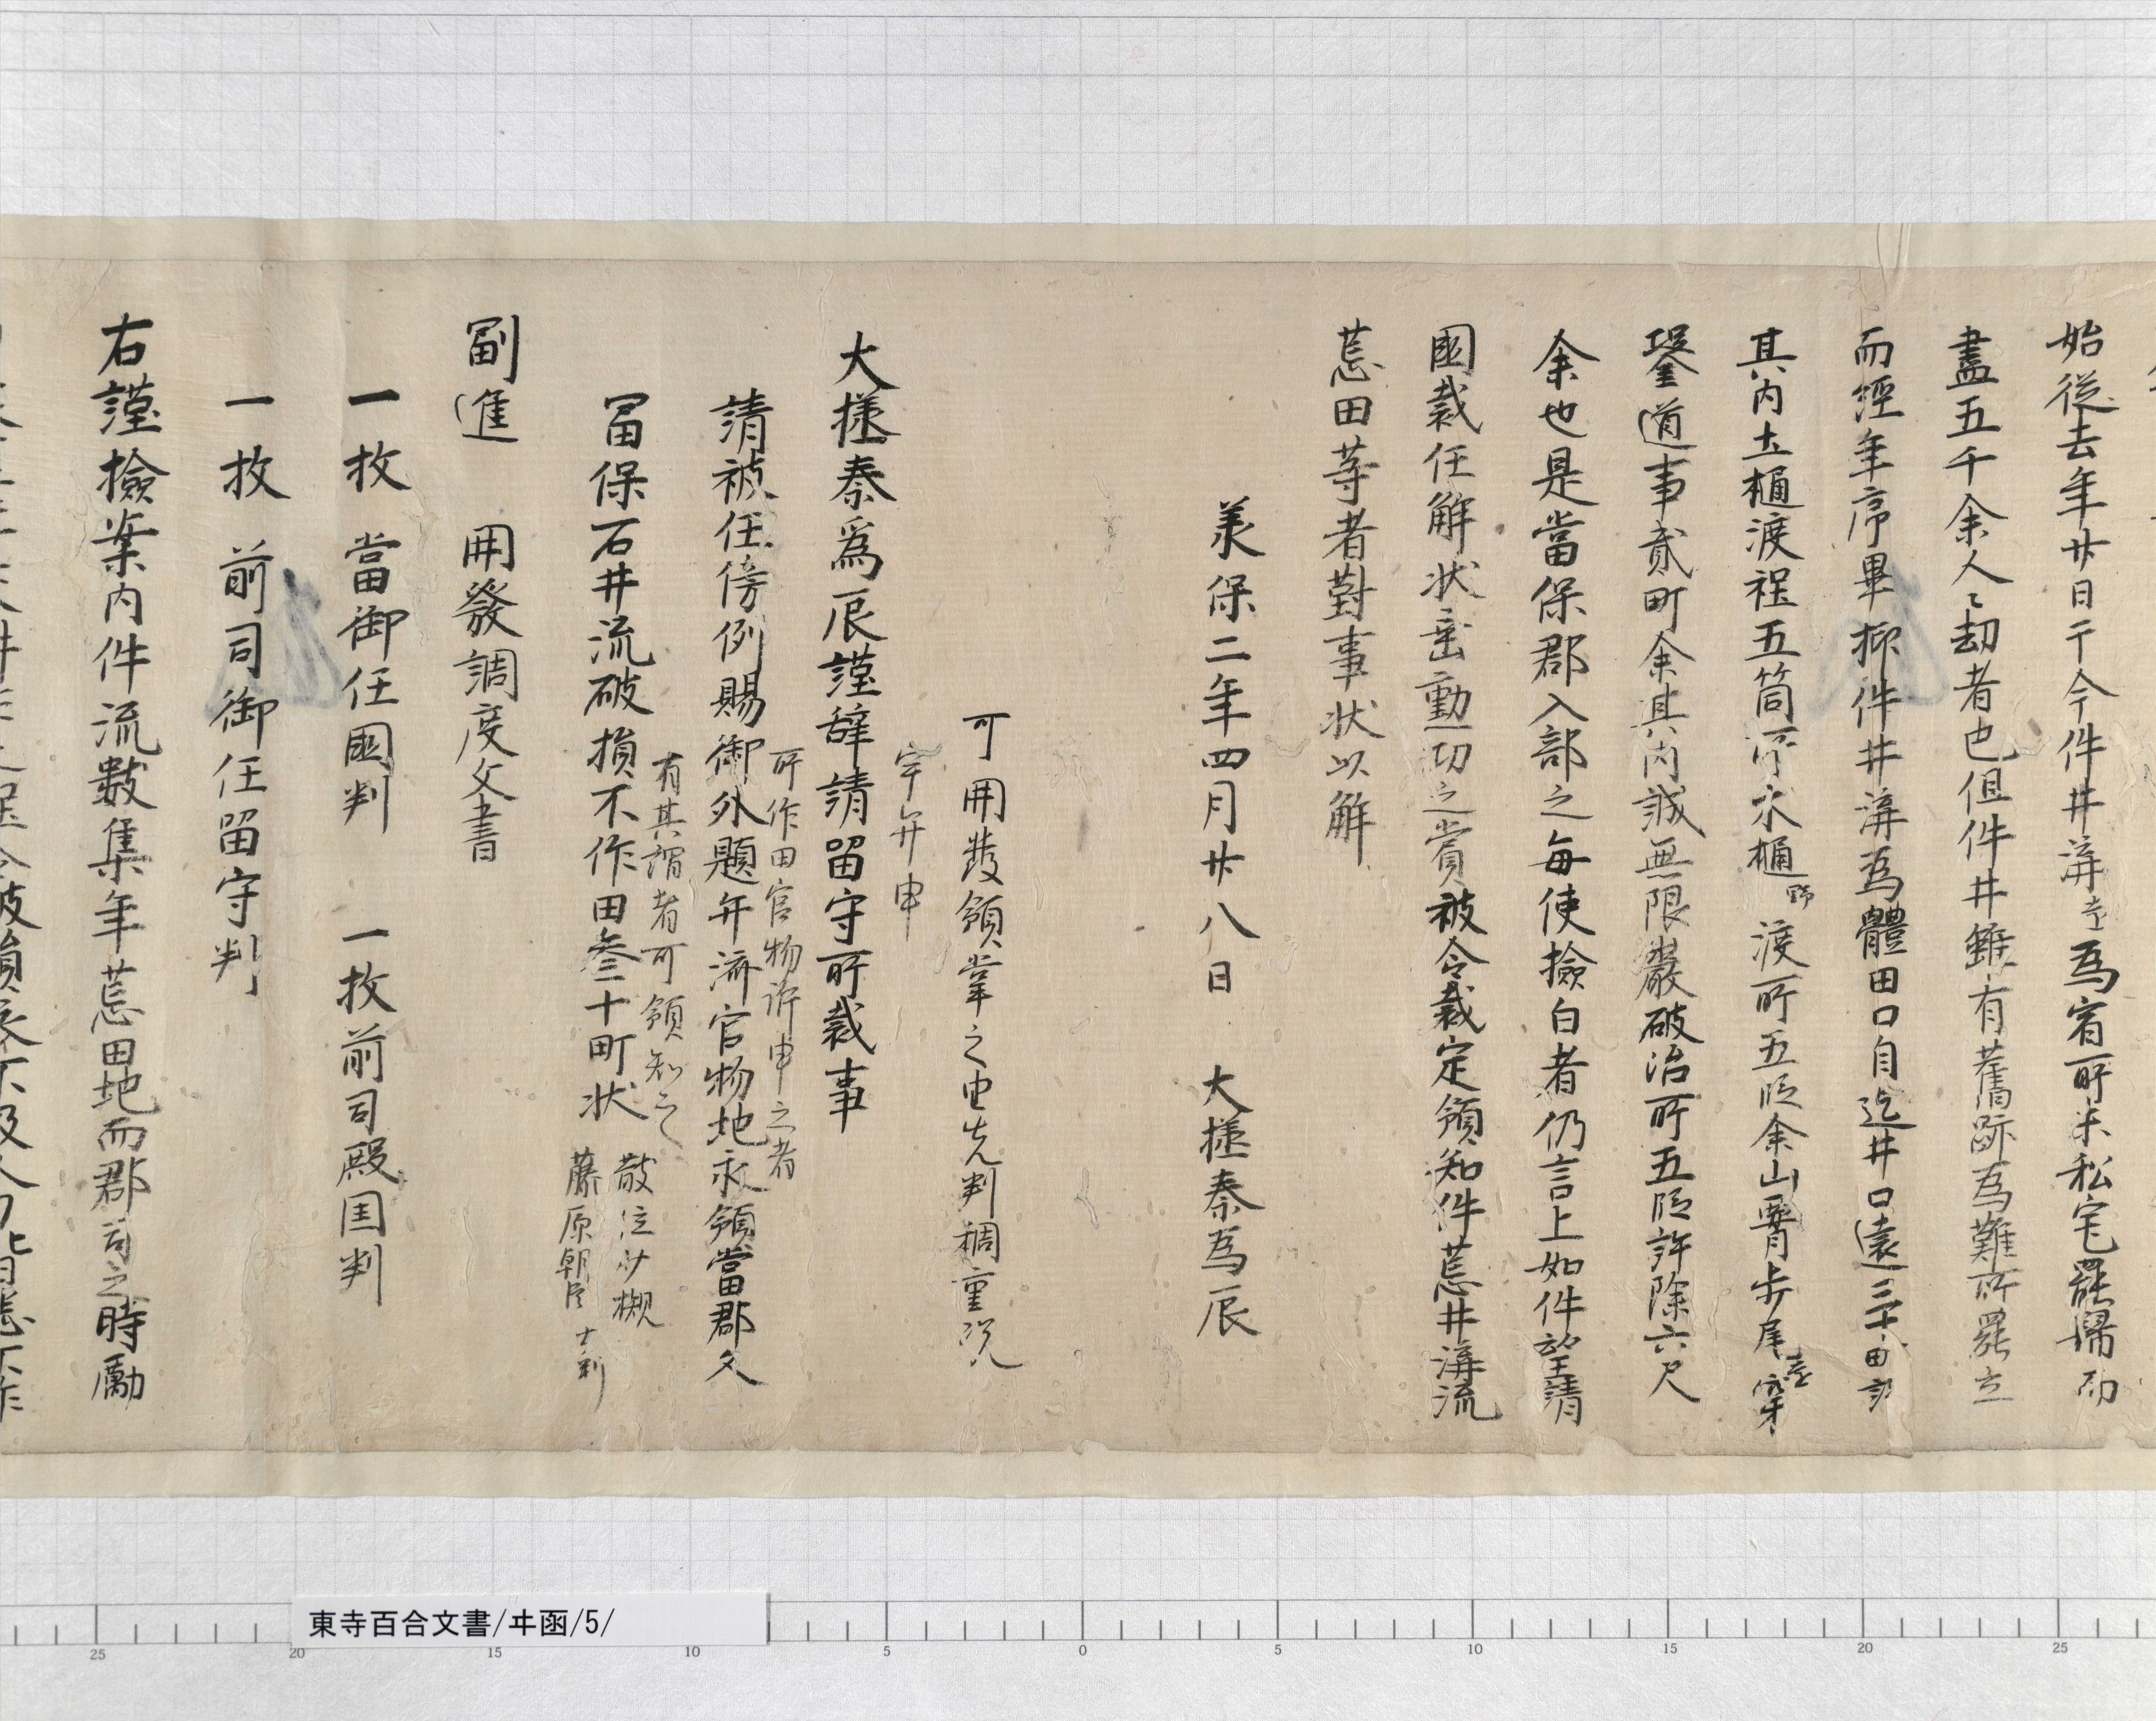 始従去年廿日于今件井溝〻為宿所米私宅罷帰而
盡五千余人〻劫者也但件井雖有舊跡為難所罷立
而經年序畢抑件井溝為體田口自迄井口遠三十町許
其内土樋渡程五箇所木樋渡所五段余山脊歩尾穿
鑿道事貳町余其内誠無限巌破治所五段許除六尺
余也是當保郡入部之毎使撿白者仍言上如件望請
國裁任解状垂勤功之賞被令裁定領知件荒井溝流
荒田等者對事状以解
承保二年四月廿八日 大掾秦為辰
可開發領掌之由先判稠重況
宇弁申
大掾秦為辰謹辞請留守所裁事
所作田官物許申之者
請被任傍例賜御外題弁済官物地永領當郡久
有其謂者可領知之
冨保石井流破損不作田叁十町状
散位少槻
藤原朝臣
副進 開發調度文書
一枚 當御任國判 一枚前司殿国判
一枚 前司御任留守判
右謹撿案内件流數集年荒田地而郡司之時勵